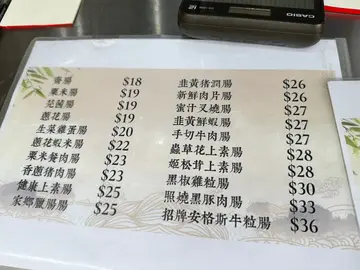 CASIO
齋腸 $18
粟米腸 $19
芫茜腸 $19
蔥花腸 $19
生菜雞蛋腸 $20
蔥花蝦米腸 $22
粟米餐肉腸 $23
香蔥豬肉腸 $23
健康上素腸 $25
家鄉臘腸腸 $25
韭黃猪潤腸 $26
新鮮肉片腸 $26
蜜汁叉燒腸 $27
韭黃鮮蝦腸 $27
手切牛肉腸 $27
蟲草花上素腸 $28
姬松茸上素腸 $28
黑椒雞粒腸 $30
照燒黑豚肉腸 $33
招牌安格斯牛粒腸 $36